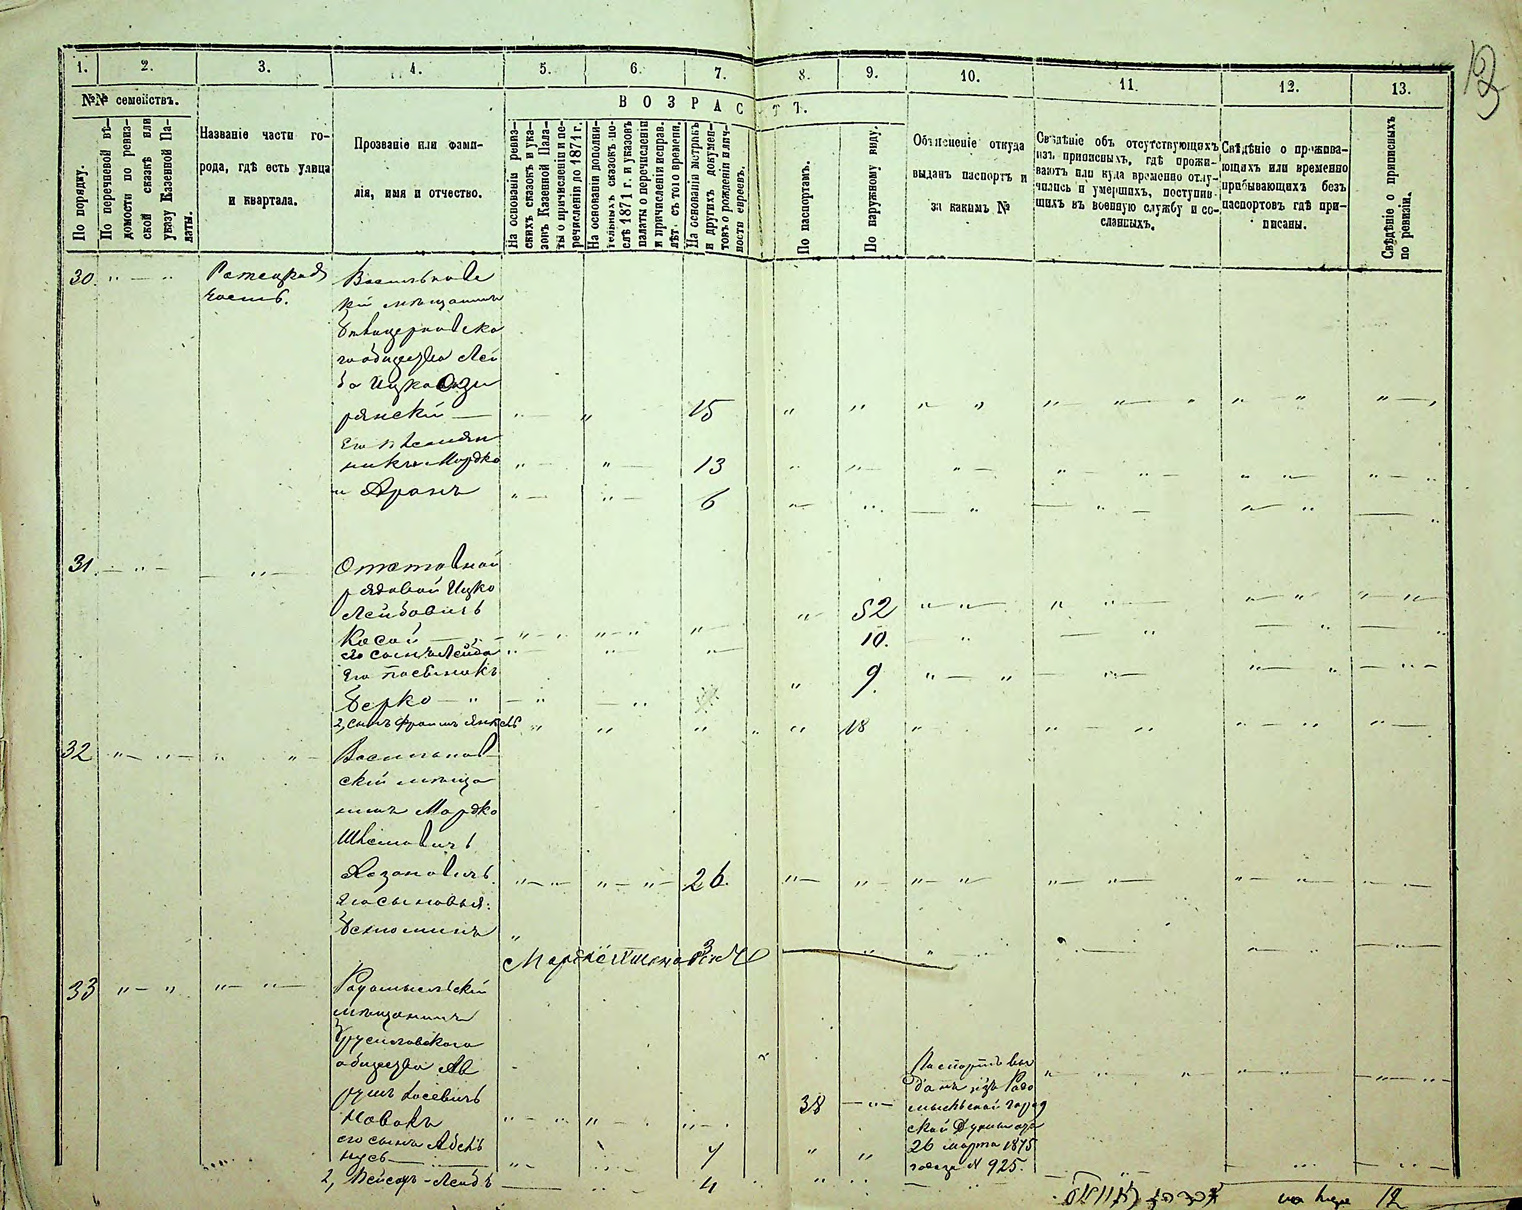 12
1. 2. 3. 4. 5. 6. 7. 8. 9. 10. 11. 12. 13.
№№ семействъ.
ВОЗРАСТЪ.
По порядку.
По поречневой вѣ-
домости по ревиз-
ской сказкѣ или
указу Казенной Па-
латы.
Названіе части го-
рода, гдѣ есть улица
и квартала.
Прозваніе или фами-
лія, имя и отчество.
На основаніи ревиз-
скихъ сказокъ и ука-
зовъ Казенной Пала-
ты о причисленіи и пе-
речисленіи до 1871 г.
На основаніи дополни-
тельныхъ сказокъ по-
слѣ 1871 г. и указовъ
палаты о перечисленіи
и причисленіи исправ.
лѣт. съ того времени.
На основаніи метрикъ
и другихъ докумен-
товъ о рожденіи и лич-
ности евреевъ.
По паспортамъ.
По наружному виду.
Объясненіе откуда
выданъ паспортъ и
за какимъ №
Свѣдѣніе объ отсутствующихъ
изъ приписныхъ, гдѣ прожи-
ваютъ или куда временно отлу-
чились и умершихъ, поступив-
шихъ въ военную службу и со-
сланныхъ.
Свѣдѣніе о прожива-
ющихъ или временно
прибывающихъ безъ
паспортовъ гдѣ при-
писаны.
Свѣдѣніе о приписныхъ
по ревизіи.
30 " — "
часть.
Васильков
кій мѣщанинъ
го общества Лей
ба Ицко Ози
рянскій — 15
его племян
никъ Мордко 13
и Аронъ 6
31 Отставной
рядовой Ицко
Лейбовичъ 52
Косой
его сынъ Лейба 10.
Его пасынокъ
Берко 9.
2, сынъ Фроимъ Янкель 18
32 Васильков
скій мѣща
нинъ Мордко
Шлемовичъ
Хазановичъ 26.
его сыновья:
Веніаминъ 3
33 Радомысльскій
мѣщанинъ
Брусиловскаго
общества Ав
румъ Іосевичъ
Новакъ 38
его сынъ
7
2, Лейбъ 4
Паспортъ вы
данъ изъ Радо
мысльской город
ской Думы отъ
26 марта 1875
года за N 925.
12